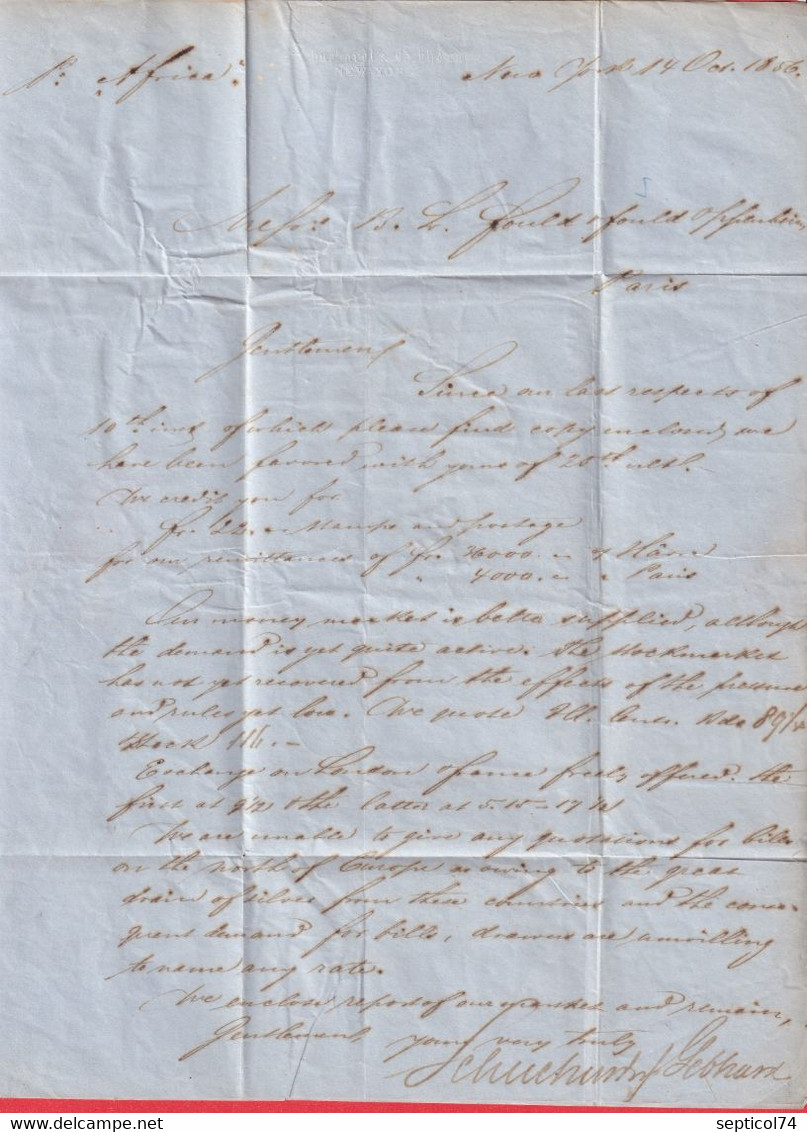 Pr "Africa"
New York 14 Oct. 1856.
Messrs B. L. Fould & Fould Oppenheim
Paris
Gentlemen!
Since our last respects of
10th inst. of which please find copy enclosed, we
have been favored with yours of 26th ult.
We credit you for
fr 22.. stamps and postage
for our remittances of fr. 36000.. o/ Hâvre
" 4000.. " Paris
Our money market is better supplied, although
the demand is yet quite active. The stockmarket
has not yet recovered from the effects of the pressure
and rules yet low. We quote Ill. Centr. Bds 89 1/4
Stock 116.-
Exchange on London & france freely offered. the
first at 9 1/2 & the latter at 5.15-17 1/2
We are unable to give any quotations for bills
on the north of Europe as owing to the great
drain of silver from these countries and the conse-
quent demand for bills, drawers are unwilling
to name any rate.
We enclose report of our market and remain,
Gentlemen yours very truly
Schuchardt & Gebhard
septicol74